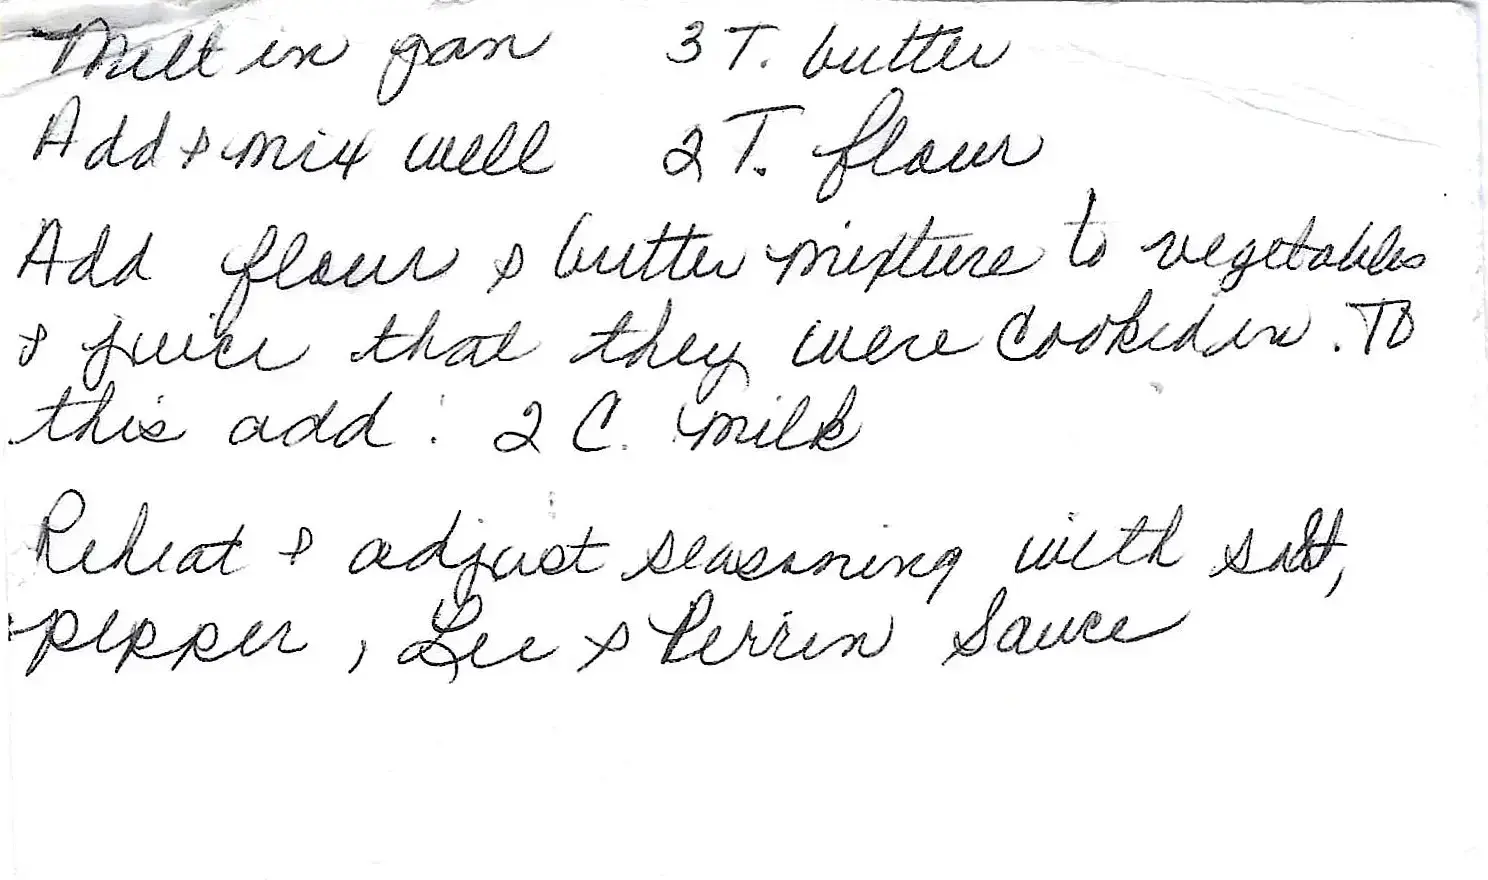 Melt in pan 3 T. butter
Add & mix well 2 T. flour
Add flour & butter mixture to vegetables
& juice that they were cooked in. To
this add: 2 C. milk
Reheat & adjust seasoning with salt,
pepper, Lee & Perrin Sauce